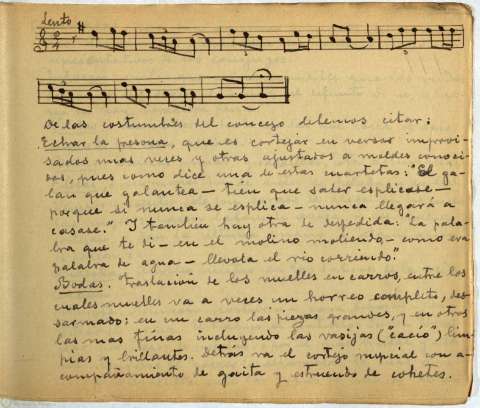 Lento
De las costumbres del concejo debemos citar:
Echar la presona, que es cortejar en versos improvi-
sados unas veces y otras ajustados a moldes conoci-
dos, pues como dice una de estas cuartetas: "El ga-
lan que galantea - tien que saber esplicase -
porque si nunca se esplica - nunca llegará a
casase." Y tambien hay otra de despedida: "La pala-
bra que te di - en el molino moliendo - como era
palabra de agua - llevola el rio corriendo."
Bodas. Traslación de los muebles en carros, entre los
cuales muebles va a veces un horreo completo, des-
armado: en un carro las piezas grandes, y en otros
las mas finas incluyendo las vasijas ("cacío") lim-
pias y brillantes. Detrás va el cortejo nupcial con a-
compañamiento de gaita y estruendo de cohetes.